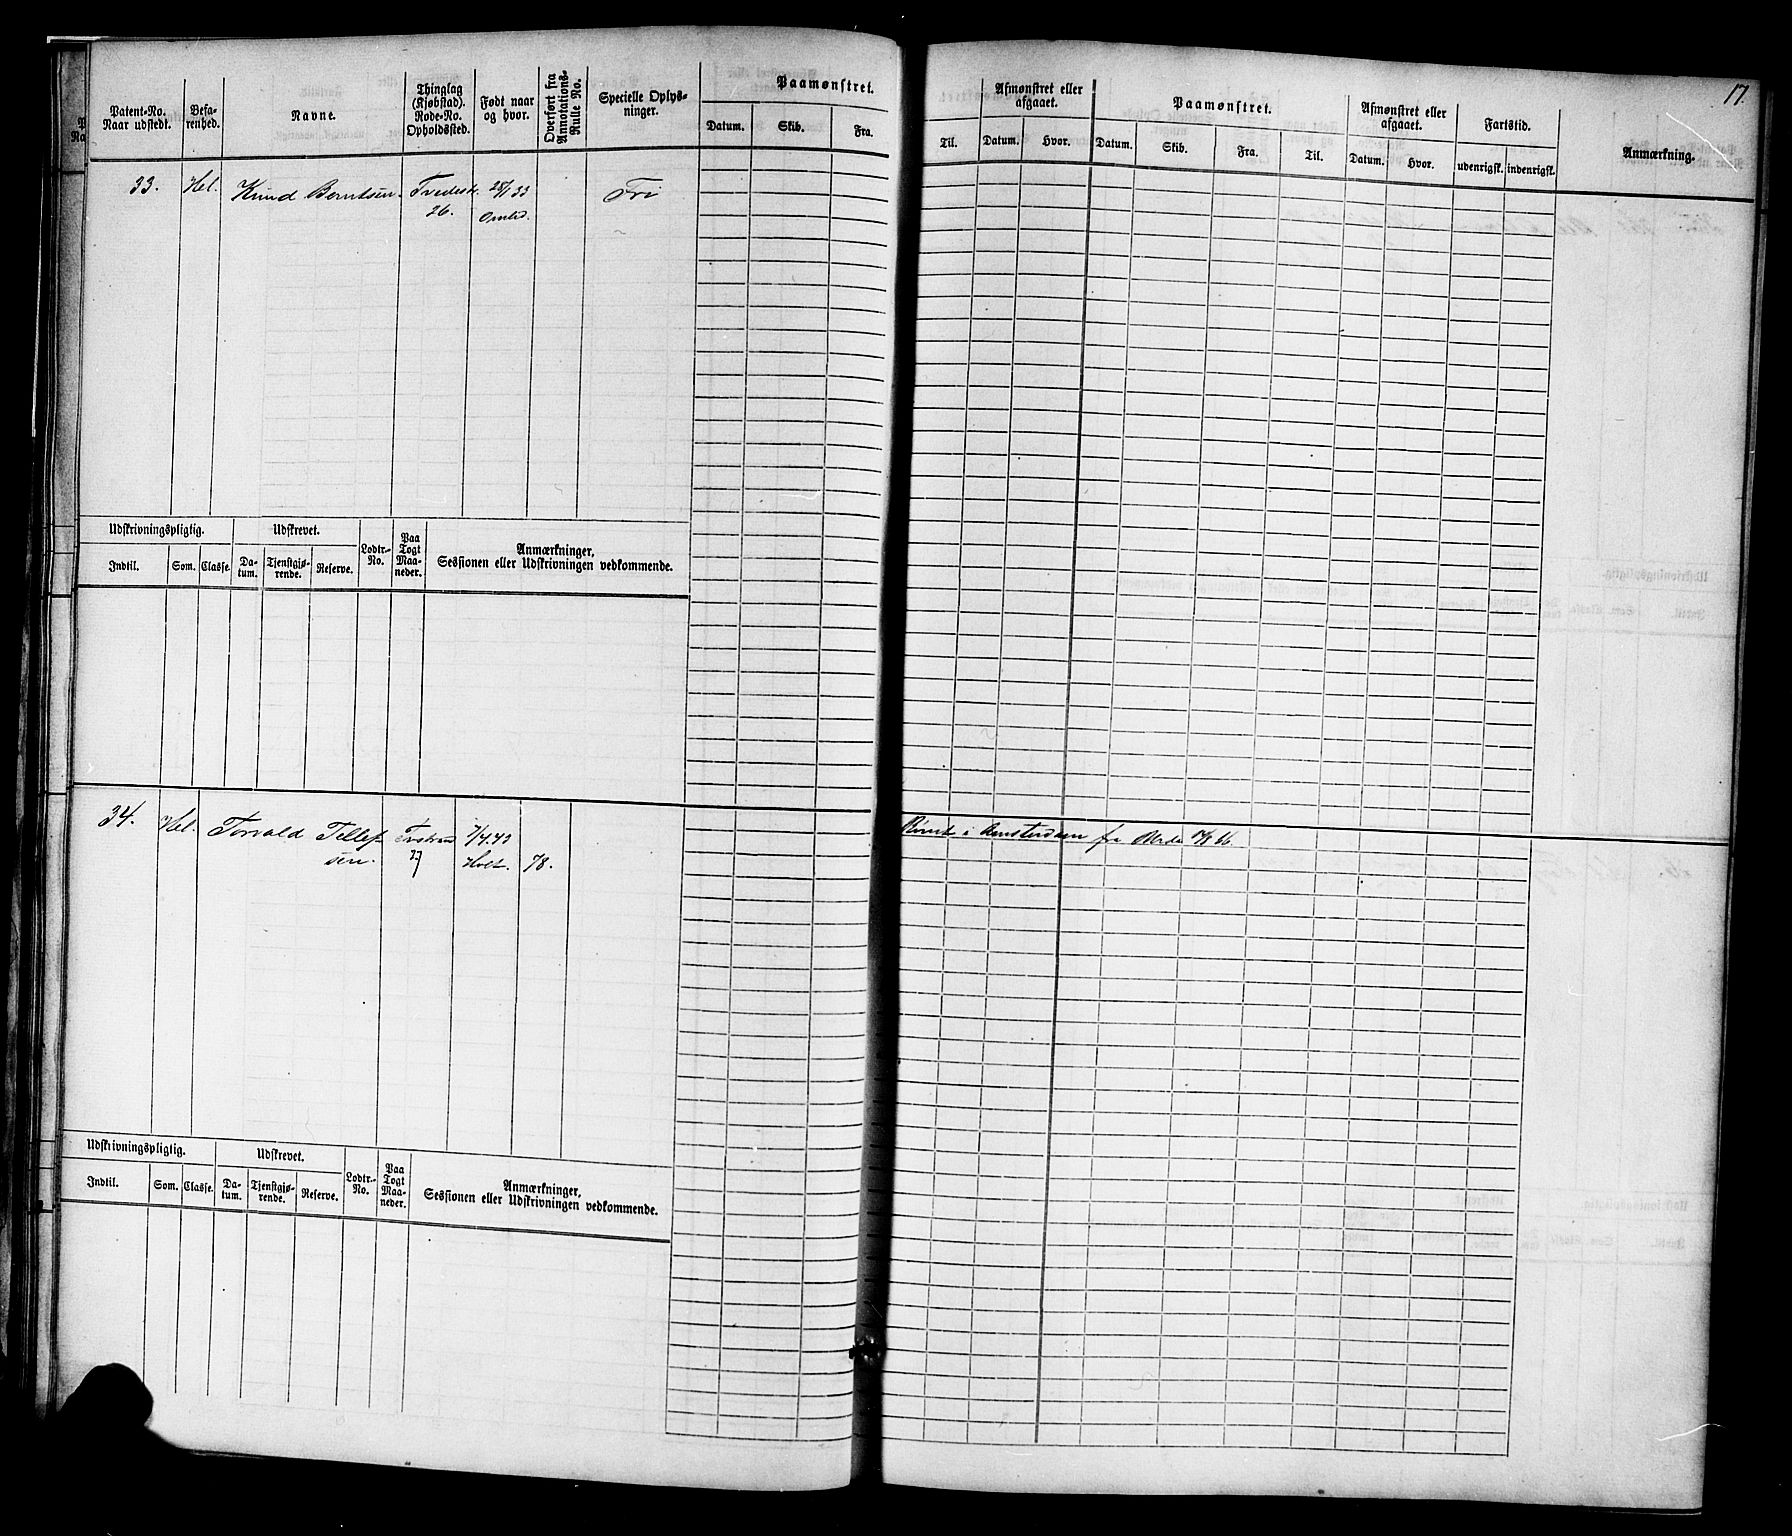 17.
Patent-No. Naar udstedt. Befarenhed. Navne. Thinglag (Kjøbstad). Rode-No. Opholdssted. Født naar og hvor. Overført fra Annotations-Rulle No. Specielle Oplysninger. Paamønstret. Datum. Skib. Fra.
Til. Afmønstret eller afgaaet. Datum. Hvor. Paamønstret. Datum. Skib. Fra. Til. Afmønstret eller afgaaet. Datum. Hvor. Fartstid. udenrigsk. indenrigsk. Anmærkning.
33. Hel. Knud Berntsen. Tvedest. 28/1 33 Fri
26. Omlid.
Udskrivningspligtig. Udskrevet. Lodtr.-No. Paa Togt Maaneder. Anmærkninger, Sessionen eller Udskrivningen vedkommende.
Indtil. Som. Classe. Datum. Tjenstgjørende. Reserve.
34. Hel. Torvald Tellef 7/4.43 Rømt i Amsterdam fra
sen. 27 Holt. 78.
Udskrivningspligtig. Udskrevet. Lodtr.-No. Paa Togt Maaneder. Anmærkninger, Sessionen eller Udskrivningen vedkommende.
Indtil. Som. Classe. Datum. Tjenstgjørende. Reserve.